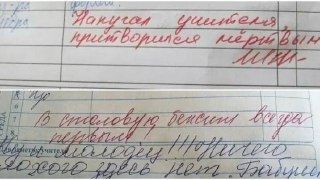 Напугал учителя,
притворился мёртвым
В столовую бежит всегда
первым
и молодец!!! Ничего
плохого здесь нет. Бабушка